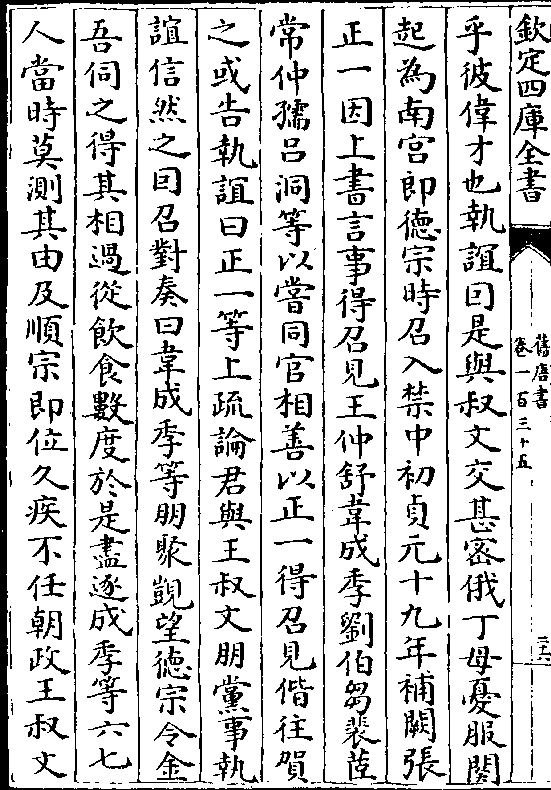 欽定四庫全書
舊唐書
卷一百三十五
三六
乎彼偉才也執誼囙是與叔文交甚密俄丁母憂服闋
起為南宫郎德宗時召入禁中初貞元十九年補闕張
正一因上書言事得召見王仲舒韋成季劉伯芻裴茝
常仲孺吕洞等以嘗同官相善以正一得召見偕往賀
之或告執誼曰正一等上疏論君與王叔文朋黨事執
誼信然之囙召對奏曰韋成季等朋聚覬望德宗令金
吾伺之得其相過從飲食數度於是盡逐成季等六七
人當時莫測其由及順宗即位久疾不任朝政王叔文